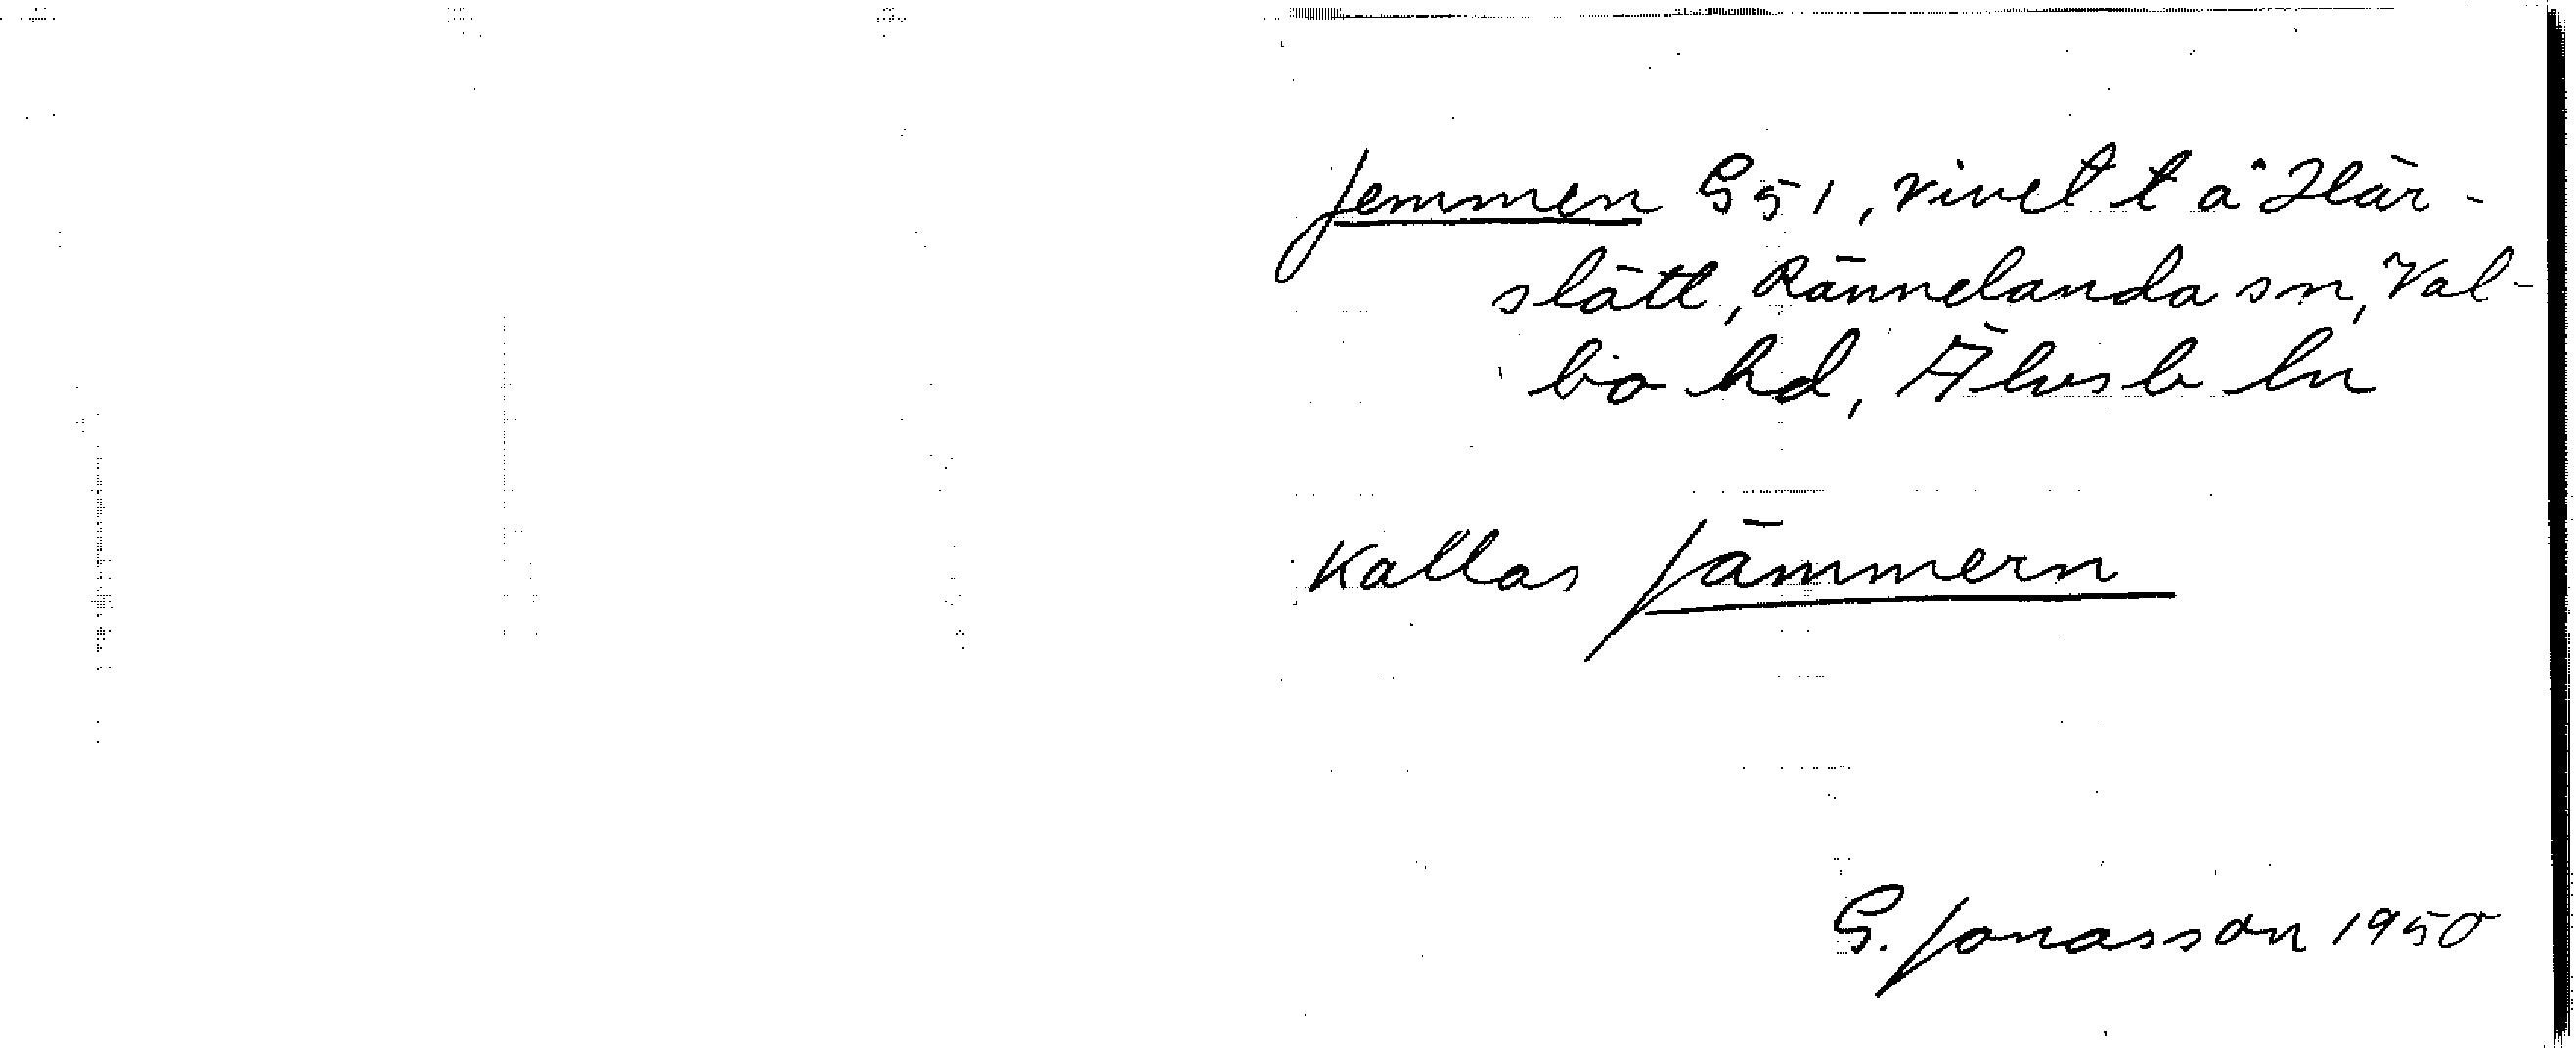 Jemmen G51, vivett å Här-
slätt, Rännelanda sn, Val-
bo hd, Älvsb ln
Kallas Jämmern
G. Jonasson 1950